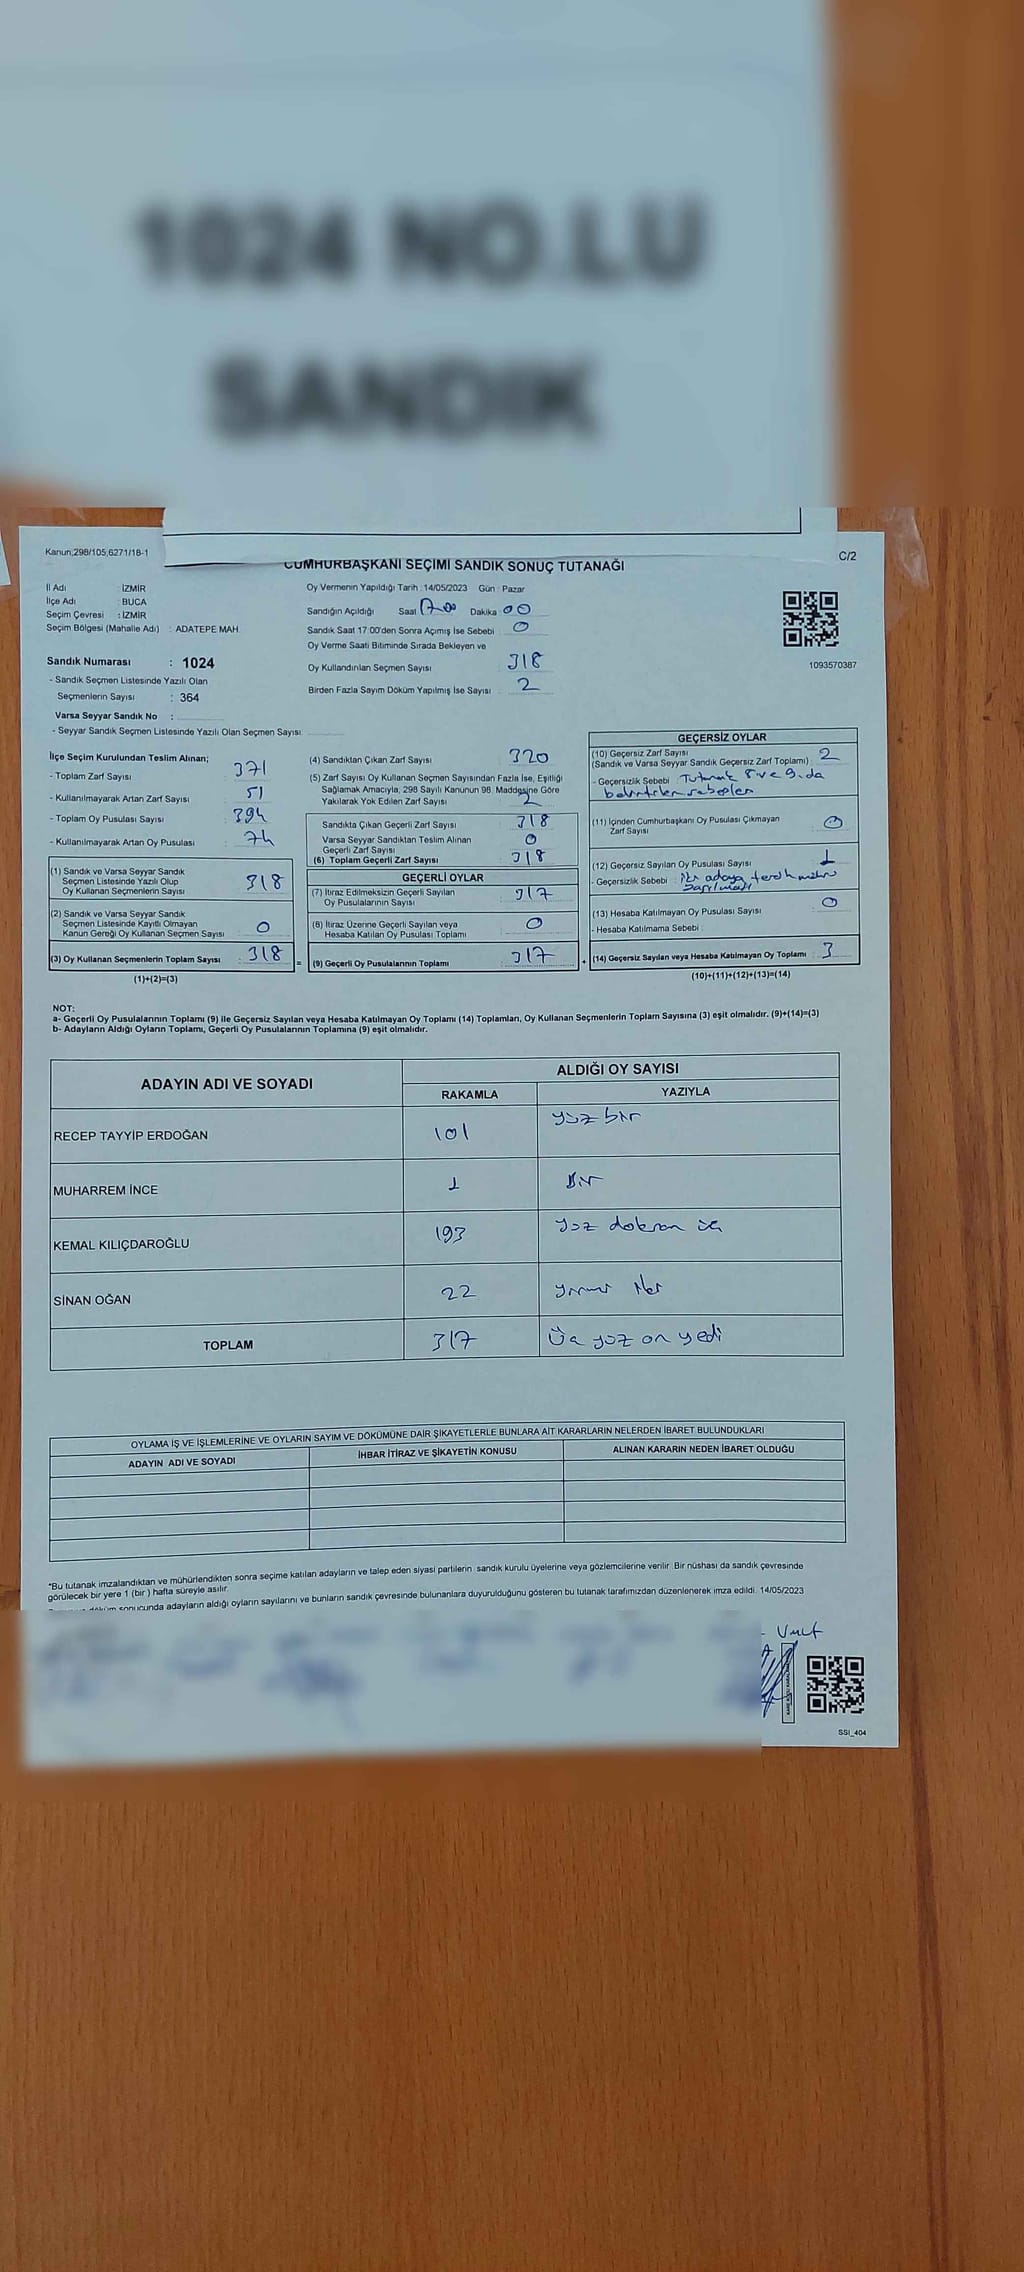 1024 NO.LU
SANDIK
Kanun;298/105,6271/18-1
C/2
CUMHURBAŞKANI SEÇİMİ SANDIK SONUÇ TUTANAĞI
İl Adı : İZMİR
İlçe Adı : BUCA
Seçim Çevresi : İZMİR
Seçim Bölgesi (Mahalle Adı) : ADATEPE MAH.
Sandık Numarası : 1024
- Sandık Seçmen Listesinde Yazılı Olan
Seçmenlerin Sayısı : 364
Varsa Seyyar Sandık No :
- Seyyar Sandık Seçmen Listesinde Yazılı Olan Seçmen Sayısı:
Oy Vermenin Yapıldığı Tarih : 14/05/2023 Gün : Pazar
Sandığın Açıldığı Saat 17.00 Dakika 00
Sandık Saat 17:00'den Sonra Açımış İse Sebebi 0
Oy Verme Saati Bitiminde Sırada Bekleyen ve
Oy Kullandırılan Seçmen Sayısı 318
Birden Fazla Sayım Döküm Yapılmış İse Sayısı 2
1093570387
İlçe Seçim Kurulundan Teslim Alınan;
- Toplam Zarf Sayısı 371
- Kullanılmayarak Artan Zarf Sayısı 51
- Toplam Oy Pusulası Sayısı 394
- Kullanılmayarak Artan Oy Pusulası 74
(1) Sandık ve Varsa Seyyar Sandık
Seçmen Listesinde Yazılı Olup
Oy Kullanan Seçmenlerin Sayısı 318
(2) Sandık ve Varsa Seyyar Sandık
Seçmen Listesinde Kayıtlı Olmayan
Kanun Gereği Oy Kullanan Seçmen Sayısı 0
(3) Oy Kullanan Seçmenlerin Toplam Sayısı : 318
(1)+(2)=(3)
(4) Sandıktan Çıkan Zarf Sayısı 320
(5) Zarf Sayısı Oy Kullanan Seçmen Sayısından Fazla İse, Eşitliği
Sağlamak Amacıyla, 298 Sayılı Kanunun 98. Maddesine Göre
Yakılarak Yok Edilen Zarf Sayısı 2
Sandıkta Çıkan Geçerli Zarf Sayısı 318
Varsa Seyyar Sandıktan Teslim Alınan
Geçerli Zarf Sayısı 0
(6) Toplam Geçerli Zarf Sayısı 318
GEÇERLİ OYLAR
(7) İtiraz Edilmeksizin Geçerli Sayılan
Oy Pusulalarının Sayısı 317
(8) İtiraz Üzerine Geçerli Sayılan veya
Hesaba Katılan Oy Pusulası Toplamı 0
(9) Geçerli Oy Pusulalarının Toplamı : 317
GEÇERSİZ OYLAR
(10) Geçersiz Zarf Sayısı
(Sandık ve Varsa Seyyar Sandık Geçersiz Zarf Toplamı) : 2
- Geçersizlik Sebebi : Tutanak 8 ve 9.da
belirtilen sebepler
(11) İçinden Cumhurbaşkanı Oy Pusulası Çıkmayan
Zarf Sayısı 0
(12) Geçersiz Sayılan Oy Pusulası Sayısı 1
- Geçersizlik Sebebi : iki adaya tercih mührü
(13) Hesaba Katılmayan Oy Pusulası Sayısı 0
- Hesaba Katılmama Sebebi :
(14) Geçersiz Sayılan veya Hesaba Katılmayan Oy Toplamı : 3
(10)+(11)+(12)+(13)=(14)
NOT:
a- Geçerli Oy Pusulalarının Toplamı (9) ile Geçersiz Sayılan veya Hesaba Katılmayan Oy Toplamı (14) Toplamları, Oy Kullanan Seçmenlerin Toplam Sayısına (3) eşit olmalıdır. (9)+(14)=(3)
b- Adayların Aldığı Oyların Toplamı, Geçerli Oy Pusulalarının Toplamına (9) eşit olmalıdır.
ADAYIN ADI VE SOYADI
ALDIĞI OY SAYISI
RAKAMLA
YAZIYLA
RECEP TAYYİP ERDOĞAN 101 yüz bir
MUHARREM İNCE 1 Bir
KEMAL KILIÇDAROĞLU 193 yüz doksan üç
SİNAN OĞAN 22 yirmi iki
TOPLAM 317 Üç yüz on yedi
OYLAMA İŞ VE İŞLEMLERİNE VE OYLARIN SAYIM VE DÖKÜMÜNE DAİR ŞİKAYETLERLE BUNLARA AİT KARARLARIN NELERDEN İBARET BULUNDUKLARI
ADAYIN ADI VE SOYADI
İHBAR İTİRAZ VE ŞİKAYETİN KONUSU
ALINAN KARARIN NEDEN İBARET OLDUĞU
*Bu tutanak imzalandıktan ve mühürlendikten sonra seçime katılan adayların ve talep eden siyasi partilerin sandık kurulu üyelerine veya gözlemcilerine verilir. Bir nüshası da sandık çevresinde
görülecek bir yere 1 (bir ) hafta süreyle asılır.
döküm sonucunda adayların aldığı oyların sayılarını ve bunların sandık çevresinde bulunanlara duyurulduğunu gösteren bu tutanak tarafımızdan düzenlenerek imza edildi. 14/05/2023
SSI_404